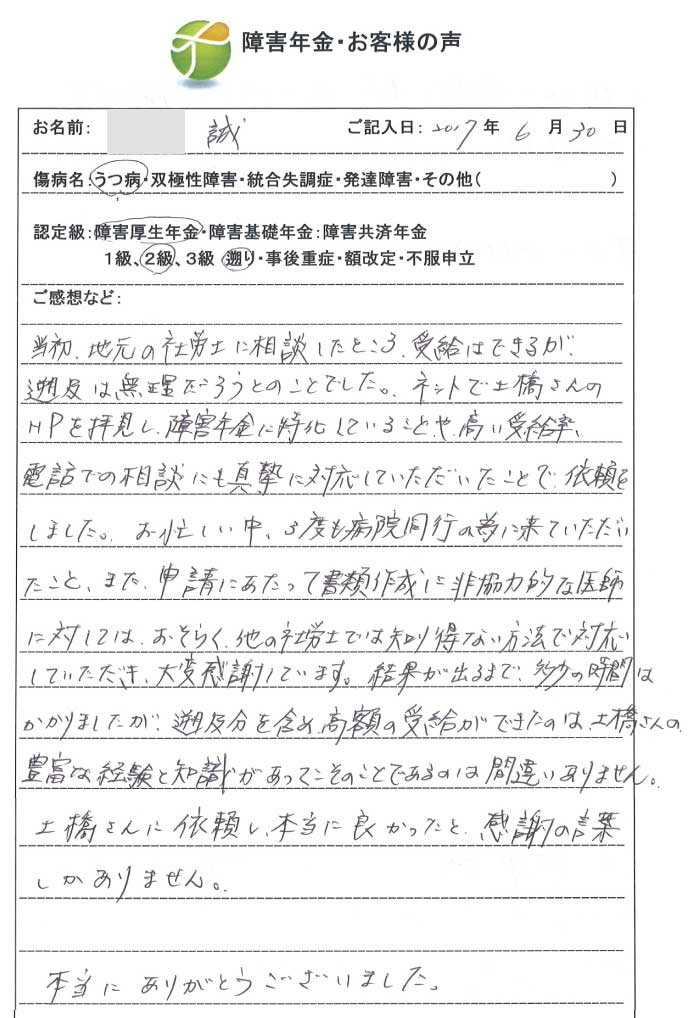 障害年金・お客様の声
お名前： 誠 ご記入日： 2017 年 6 月 30 日
傷病名：うつ病・双極性障害・統合失調症・発達障害・その他（ ）
認定級：障害厚生年金・障害基礎年金：障害共済年金
1級、2級、3級 遡り・事後重症・額改定・不服申立
ご感想など：
当初、地元の社労士に相談したところ、受給はできるが、
遡及は無理だろうとのことでした。ネットで土橋さんの
HPを拝見し、障害年金に特化していることや、高い受給率、
電話での相談にも真摯に対応していただいたことで、依頼を
しました。お忙しい中、3度も病院同行の為に来ていただい
たこと、また、申請にあたって書類作成に非協力的な医師
に対しては、おそらく、他の社労士では知り得ない方法で対応
していただき、大変感謝しています。結果が出るまで、多少の時間は
かかりましたが、遡及分を含め、高額の受給ができたのは、土橋さんの
豊富な経験と知識があってこそのことであるのは間違いありません。
土橋さんに依頼し、本当に良かったと、感謝の言葉
しかありません。
本当にありがとうございました。